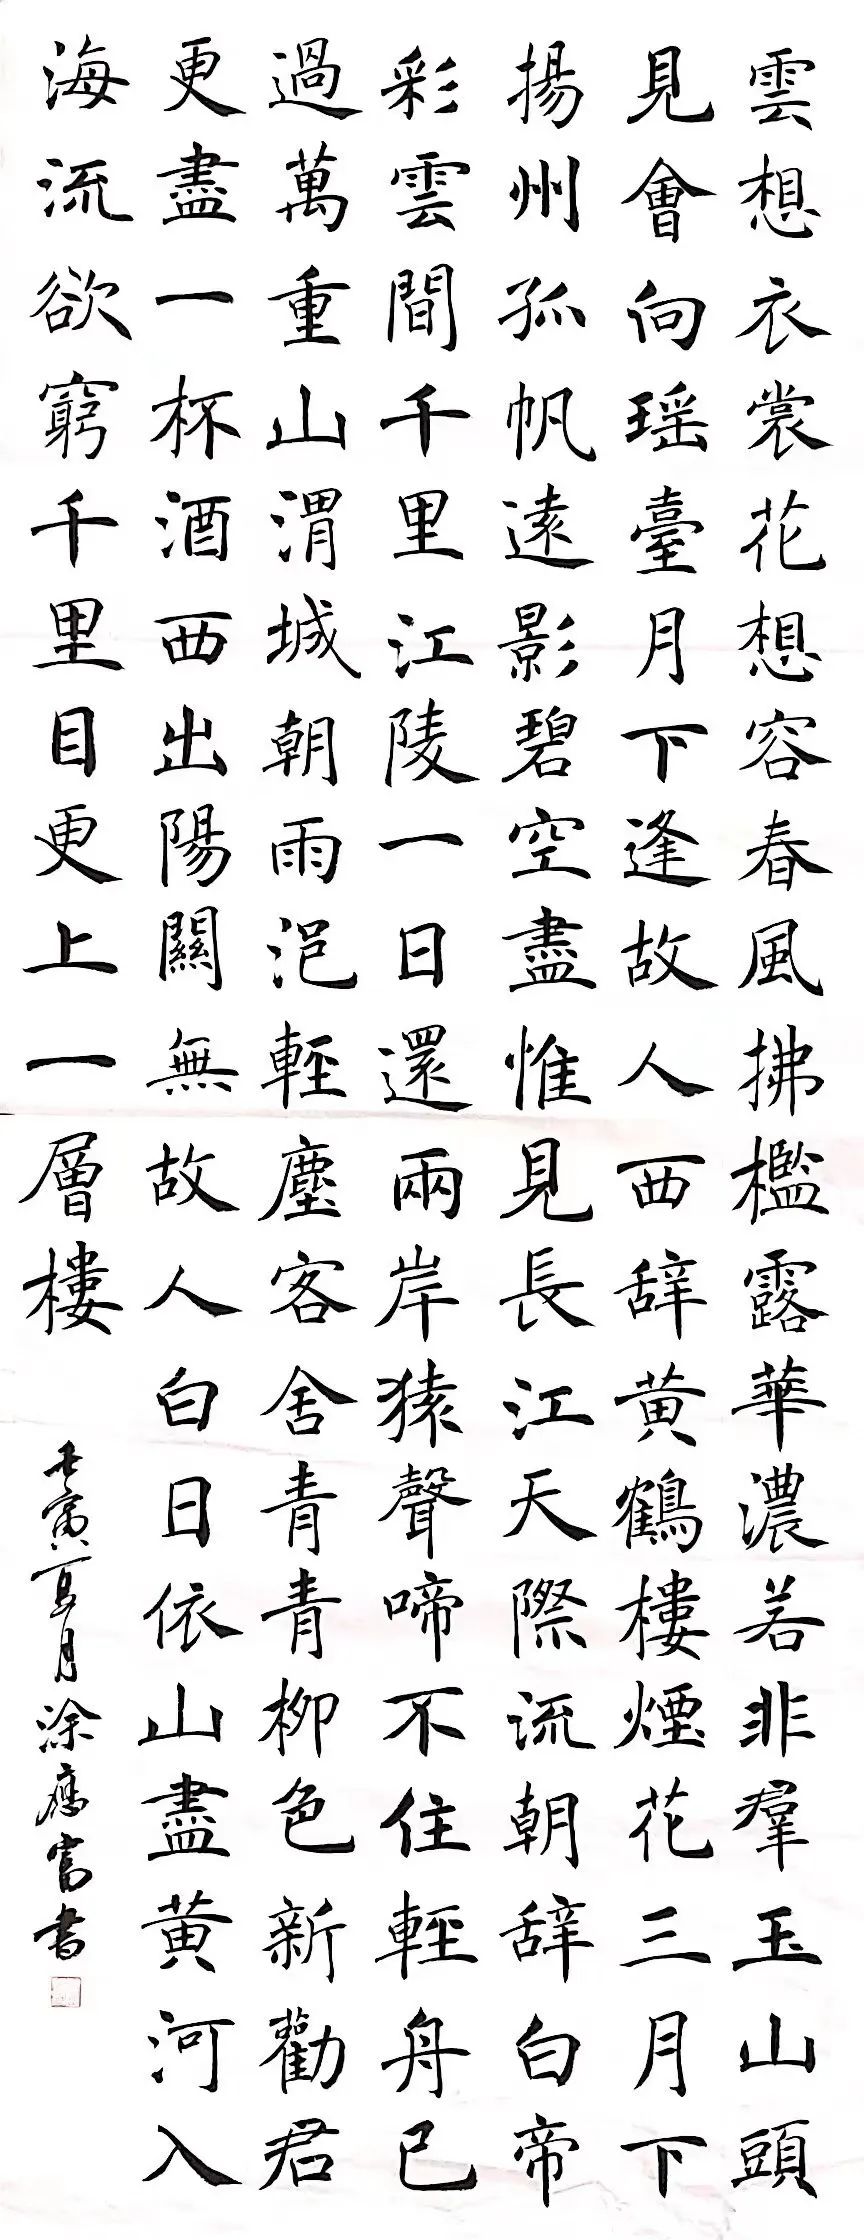 雲想衣裳花想容春風拂檻露華濃若非羣玉山頭
見會向瑶臺月下逢故人西辞黄鶴樓煙花三月下
揚州孤帆遠影碧空盡惟見長江天際流朝辞白帝
彩雲間千里江陵一日還兩岸猿聲啼不住輕舟已
過萬重山渭城朝雨浥輕塵客舍青青柳色新勸君
更盡一杯酒西出陽關無故人白日依山盡黄河入
海流欲窮千里目更上一層樓
壬寅夏月涂應富书